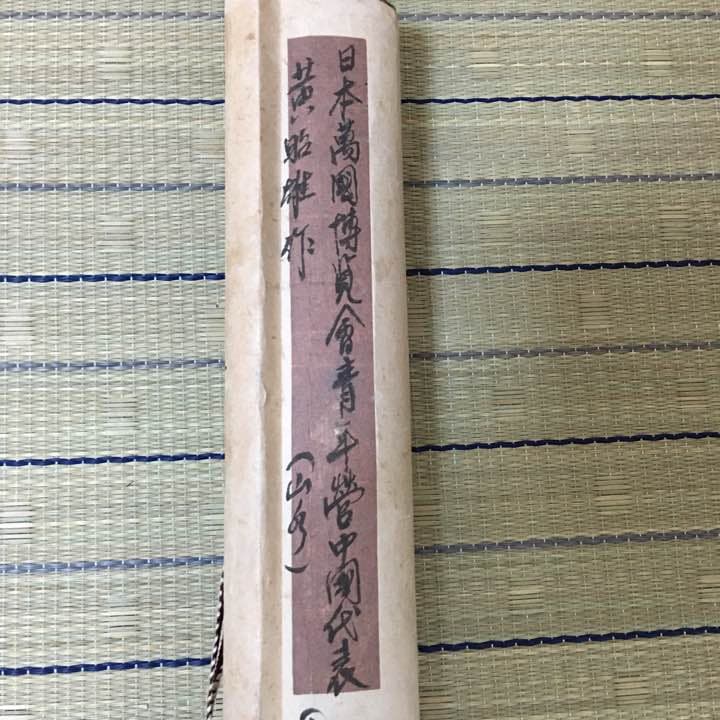 日本萬國博覧會青年營中國代表
黃昭雄作
(山水)